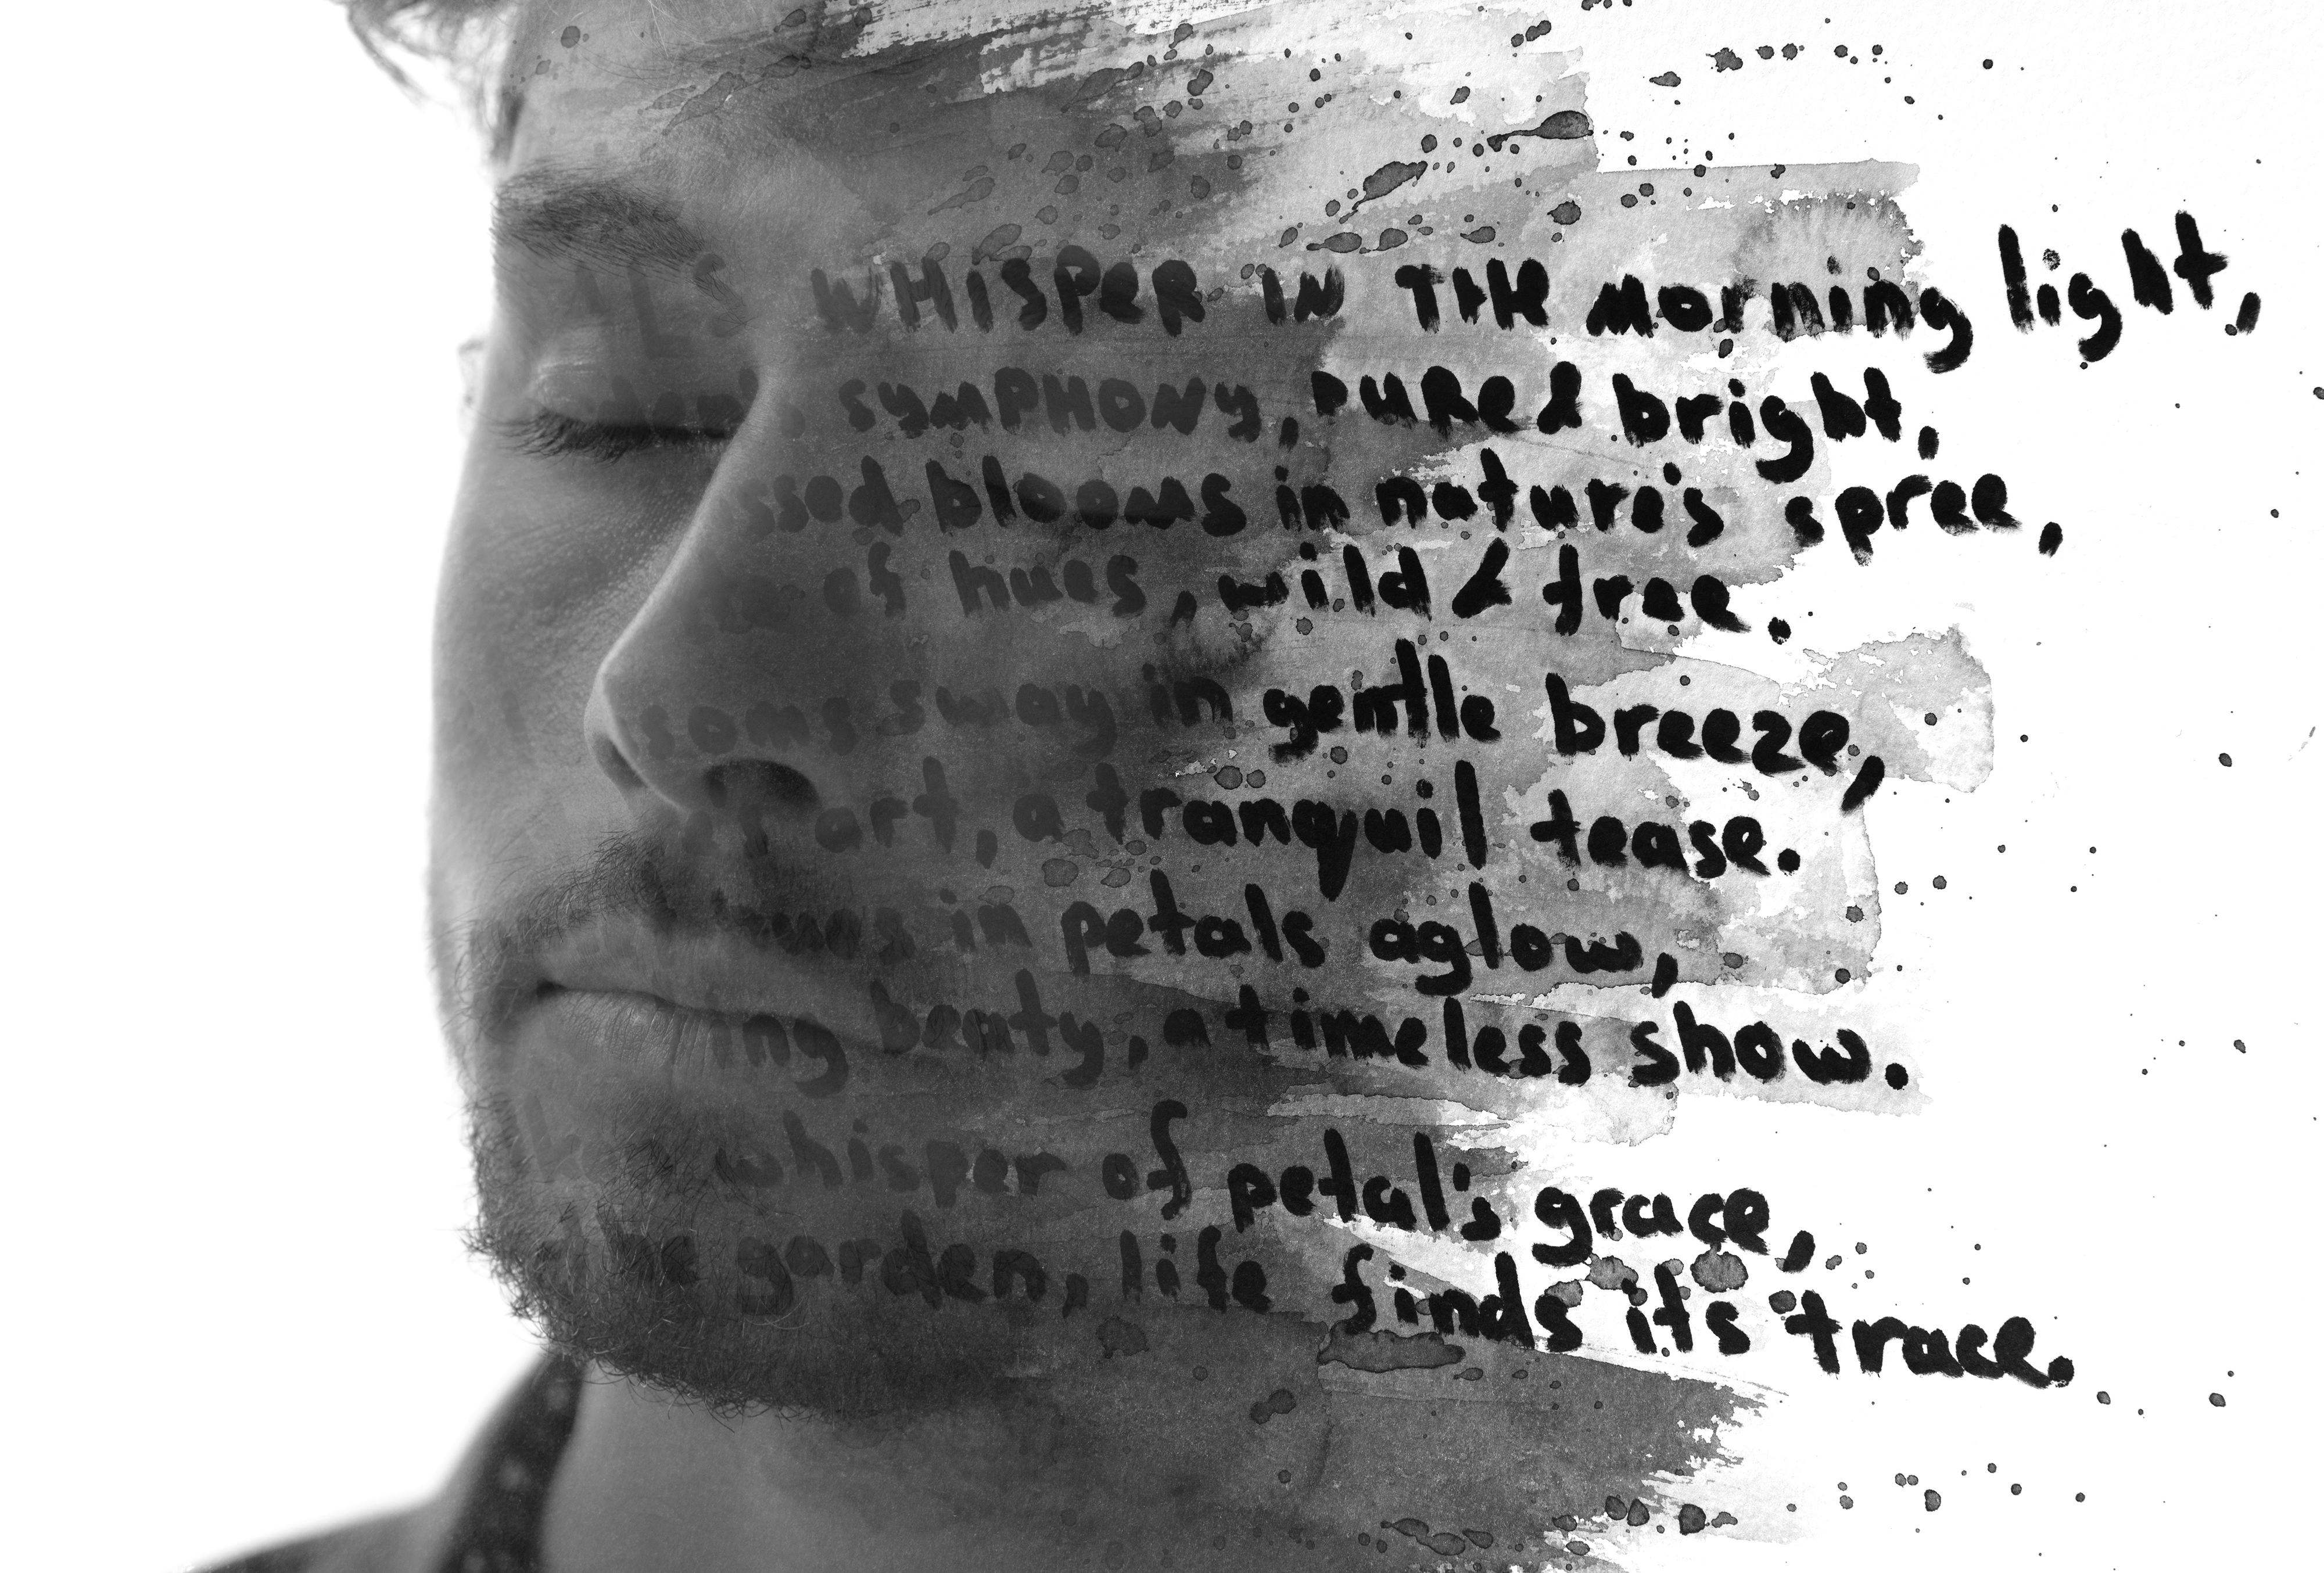 WHISPER IN THE morning light,
SYMPHONY, PURE & bright,
blooms in nature's spree,
of hues, wild & free.
sway in gentle breeze,
art, a tranquil tease.
in petals aglow,
beaty, a timeless show.
whisper of petal's grace,
the garden, life finds its trace.